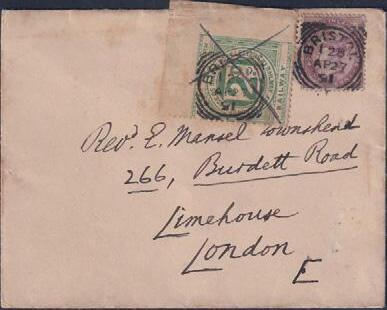 BRISTOL
1 28
AP 27
91
RAILWAY
2D
Revd. E. Mansel Townshend
266, Burdett Road
Limehouse
London
E